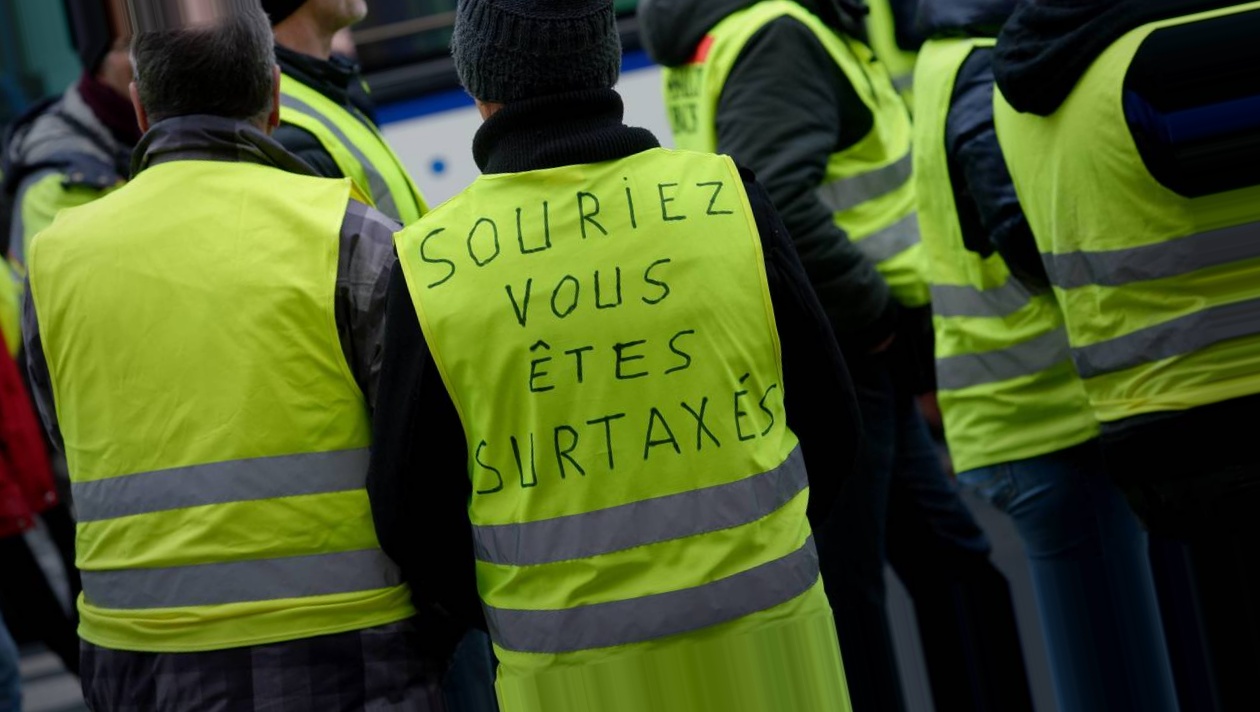 SOURIEZ
VOUS
ÊTES
SURTAXÉS